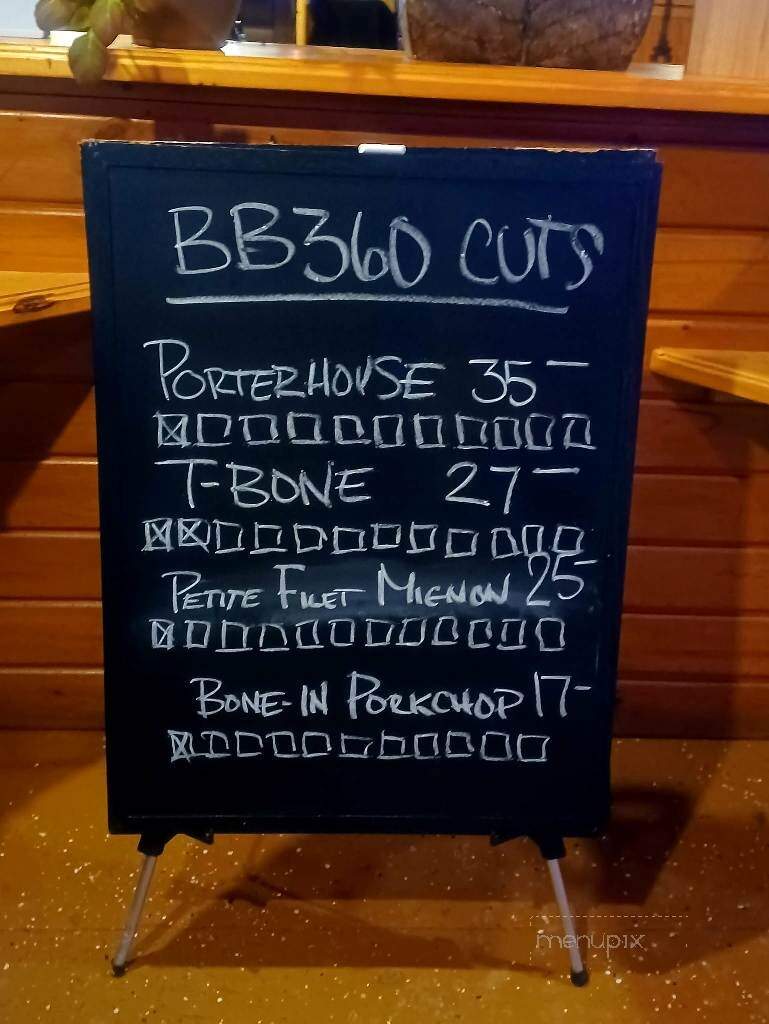 BB360 CUTS
PORTERHOUSE 35-
T-BONE 27-
PETITE FILET MIGNON 25-
BONE-IN PORKCHOP 17-
menupix